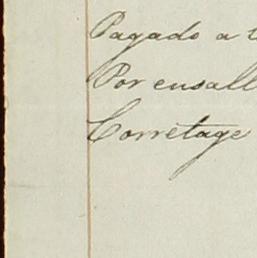 Pagado a
Por ensall
Corretage